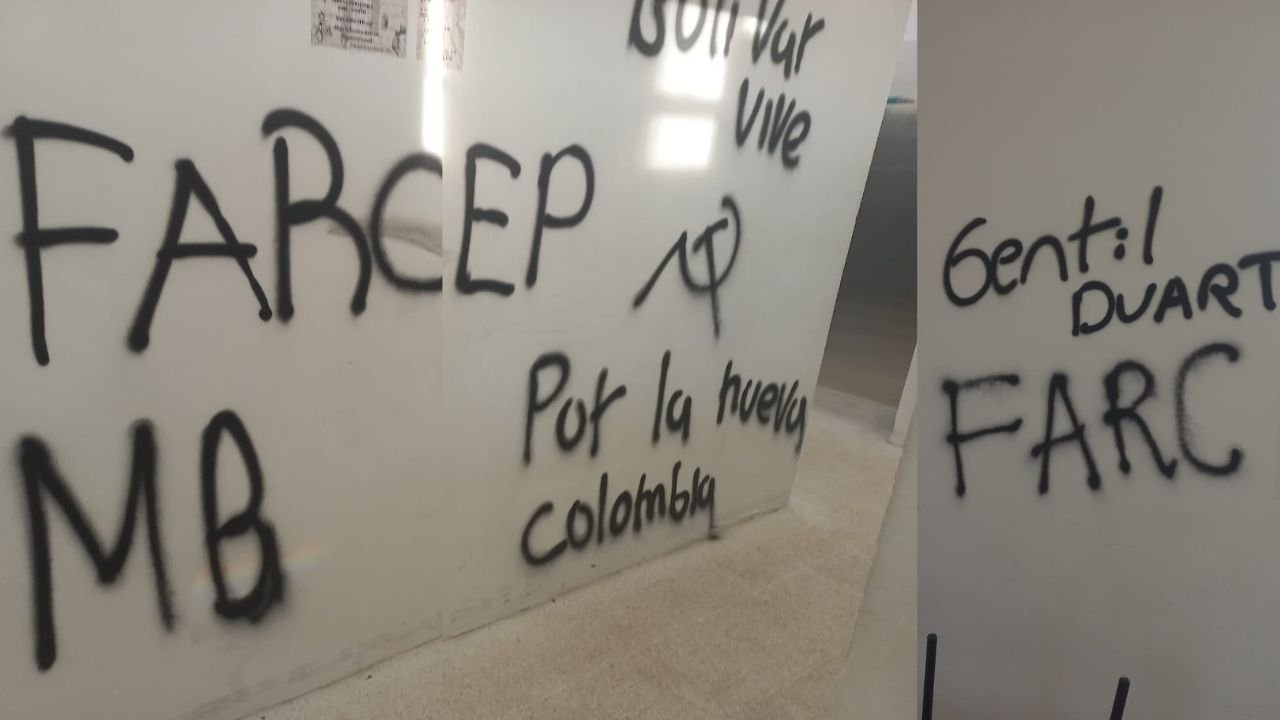 Bolivar
vive
FARCEP
MB
Por la nueva
colombia
Gentil
DUART
FARC